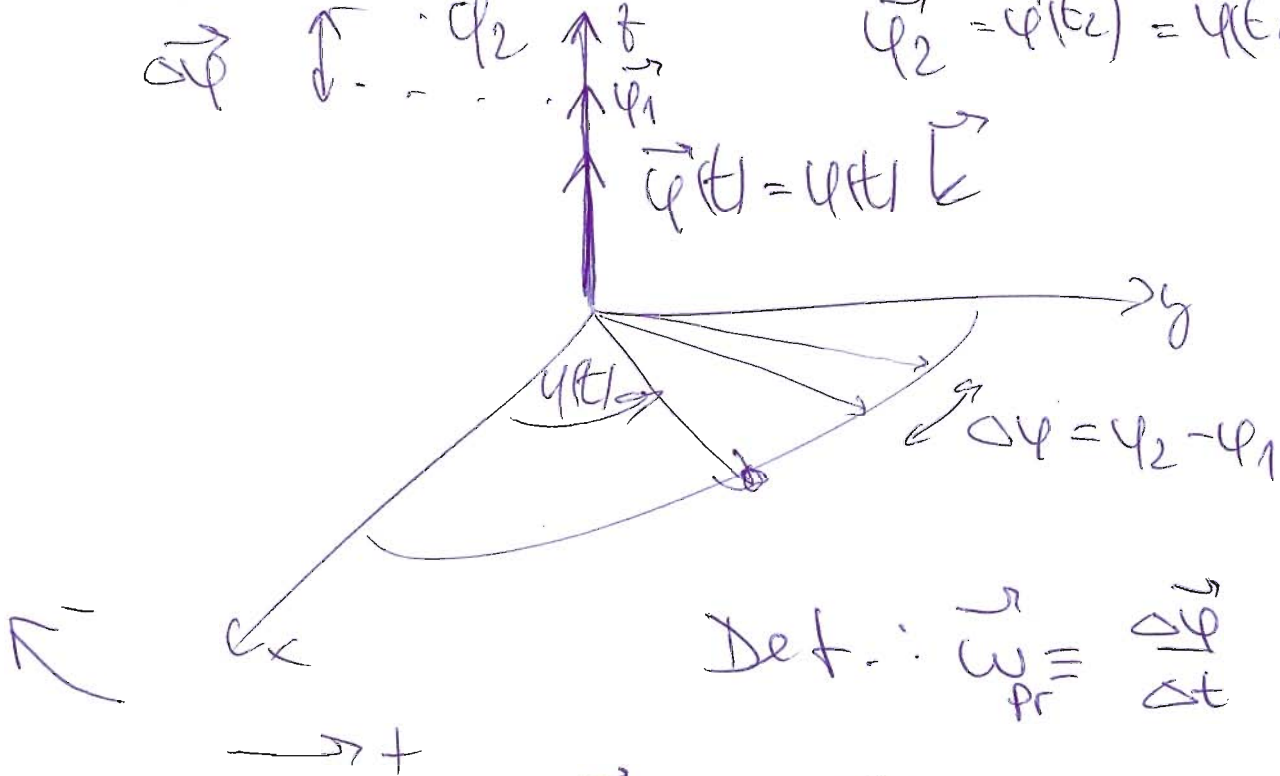 Δφ⃗ φ₂ z φ⃗₂ = φ(t₂) = φ(t
φ⃗₁
φ⃗(t) = φ(t) k⃗
y
φ(t)
Δφ = φ₂ - φ₁
-
x
Def.: ω⃗pr ≡ Δφ⃗/Δt
+